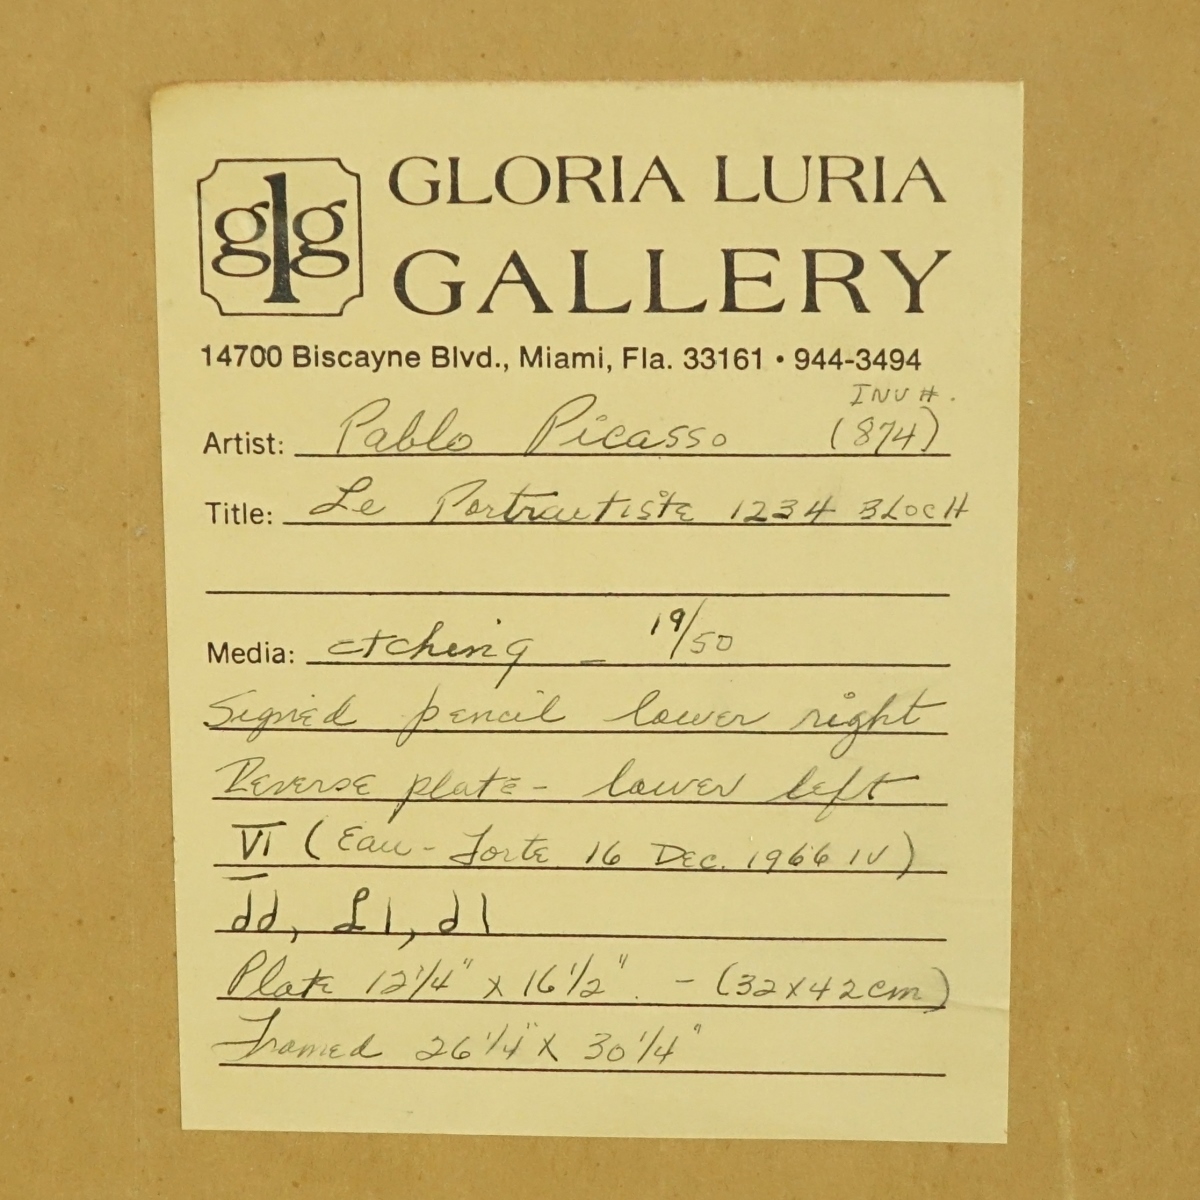 glg
GLORIA LURIA
GALLERY
14700 Biscayne Blvd., Miami, Fla. 33161 • 944-3494
INV #.
Artist: Pablo Picasso (874)
Title: Le Portraitiste 1234 BLocH
Media: etching - 19/50
Signed pencil lower right
Reverse plate - lower left
VI (Eau-Forte 16 Dec. 1966 IV)
dd, £1, d1
Plate 12 1/4" x 16 1/2" - (32x42cm)
Framed 26 1/4" x 30 1/4"